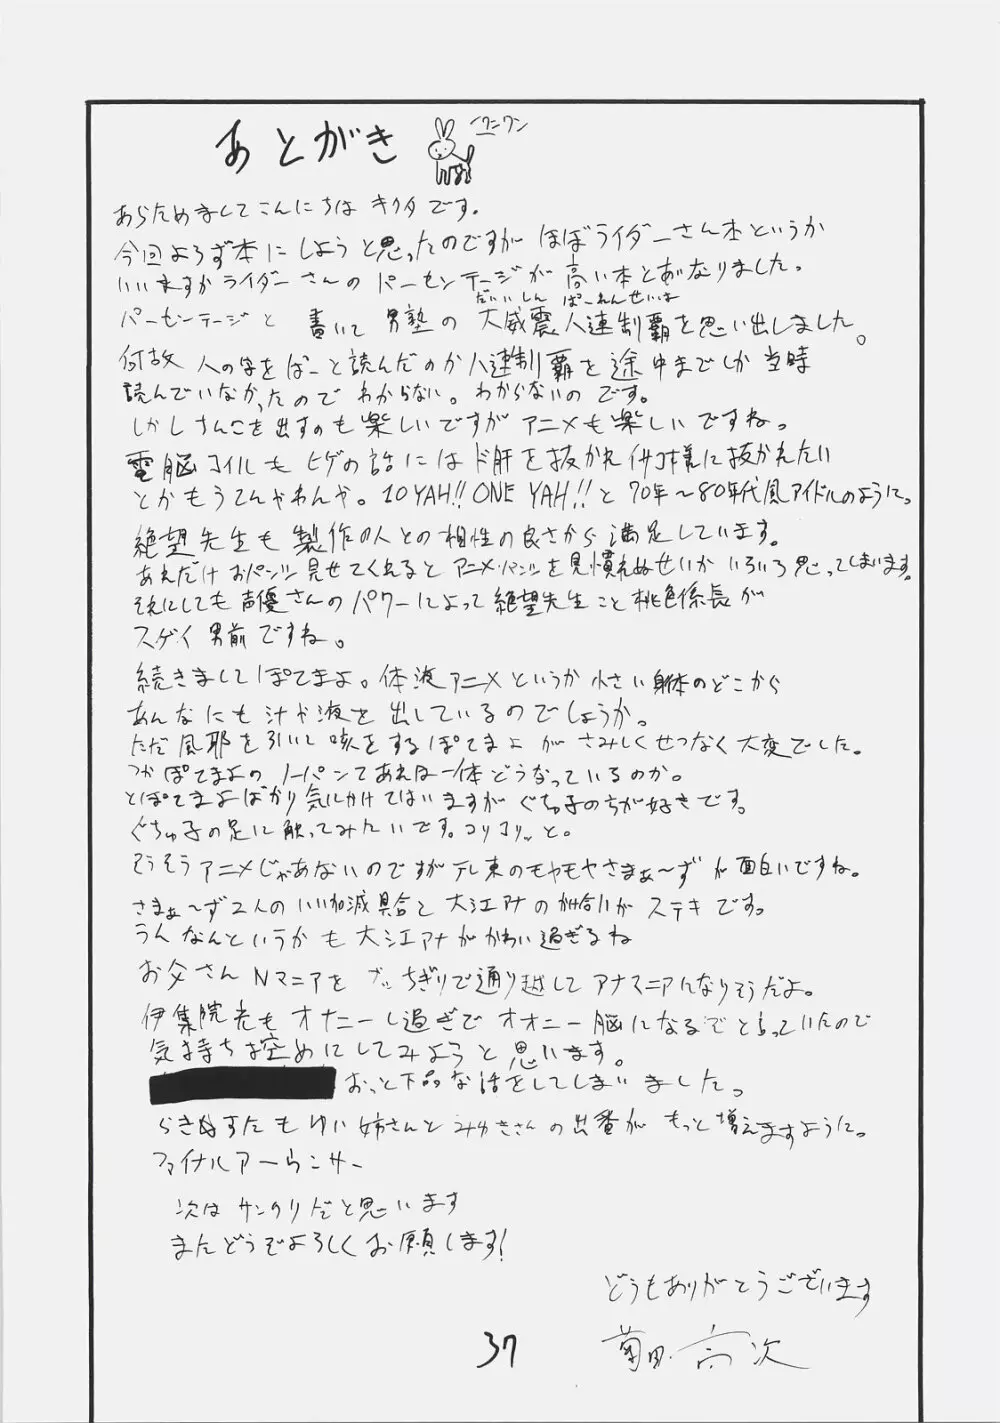 あとがき
ワンワン
あらためましてこんにちは キクタです。
今回よろず本にしようと思ったのですが ほぼライダーさん本というか
いいますかライダーさんの パーセンテージが高い本とあいなりました。
だいいしん ぱーれんせいは
パーセンテージと 書いて 男塾の 大威震八連制覇を思い出しました。
何故 人のはをぱーと読んだのか八連制覇を途中までしか当時
読んでいなかったので わからない。わからないの です。
しかし さんこを出すのも楽しいですが アニメも楽しいですね。
電脳コイルも ヒゲの話には ド肝を抜かれ イサコ様に抜かれたい
とかもうてんやわんや。10YAH!! ONE YAH!! と 70年～80年代風アイドルのように。
絶望先生も 製作の人との相性の良さから 満足しています。
あれだけ おパンツ見せてくれると アニメ・パンツを見慣れぬせいか いろいろ思ってしまいます。
それにしても声優さんのパワーによって絶望先生こと桃色係長が
スゲイ 男前ですね。
続きましてぽてまよ。体液アニメというか 小さい身体のどこから
あんなにも汁や液を出しているのでしょうか。
ただ風邪を引いて咳をするぽてまよ がさみしくせつなく大変でした。
つかぽてまよのノーパンであれは一体どうなっているのか。
とぽてまよばかり気にかけてはいますが ぐちゅ子のちが好きです。
ぐちゅ子の足に触ってみたいです。コリコリッと。
そうそうアニメじゃあないのですが テレ東のモヤモヤさまぁ～ずが面白いですね。
さまぁ～ず2人のいい加減具合と 大江アナの 具合がステキです。
うん なんというかも 大江アナがかわい過ぎるね
お父さん Nマニアを ブッちぎりで通り越して アナマニアになりそうだよ。
伊集院光も オナニーし過ぎで オオニー脳になるでと言っていたので
気持ち控めにしてみようと思います。
おっと下品な話をしてしまいました。
らき☆すたも ゆい姉さんと みゆきさんの出番が もっと増えますように。
ファイナルアーウンサー
次は サンクリだと思います
またどうぞよろしくお願します!
どうもありがとうございます
菊田 高次
37